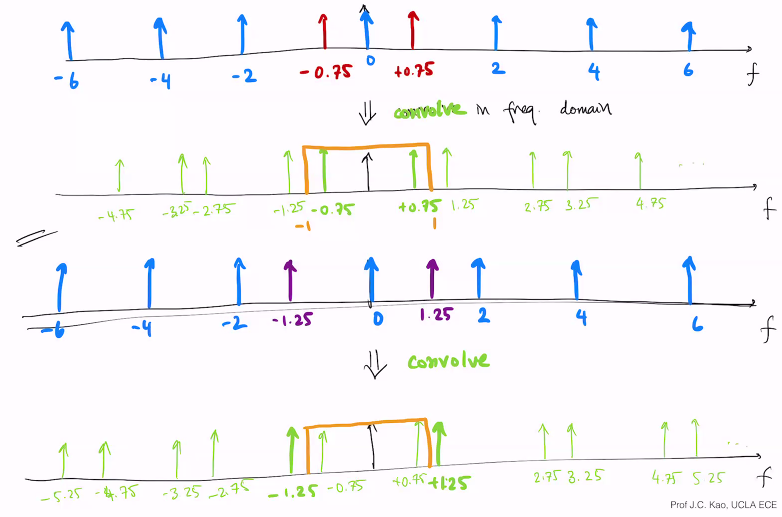 -6 -4 -2 -0.75 0 +0.75 2 4 6 f
⇓ convolve in freq. domain
-4.75 -3.25 -2.75 -1.25 -0.75 +0.75 1.25 2.75 3.25 4.75 ... f
-1 1
-6 -4 -2 -1.25 0 1.25 2 4 6 f
⇓ convolve
-5.25 -4.75 -3.25 -2.75 -1.25 -0.75 +0.75 +1.25 2.75 3.25 4.75 5.25 ... f
Prof J.C. Kao, UCLA ECE